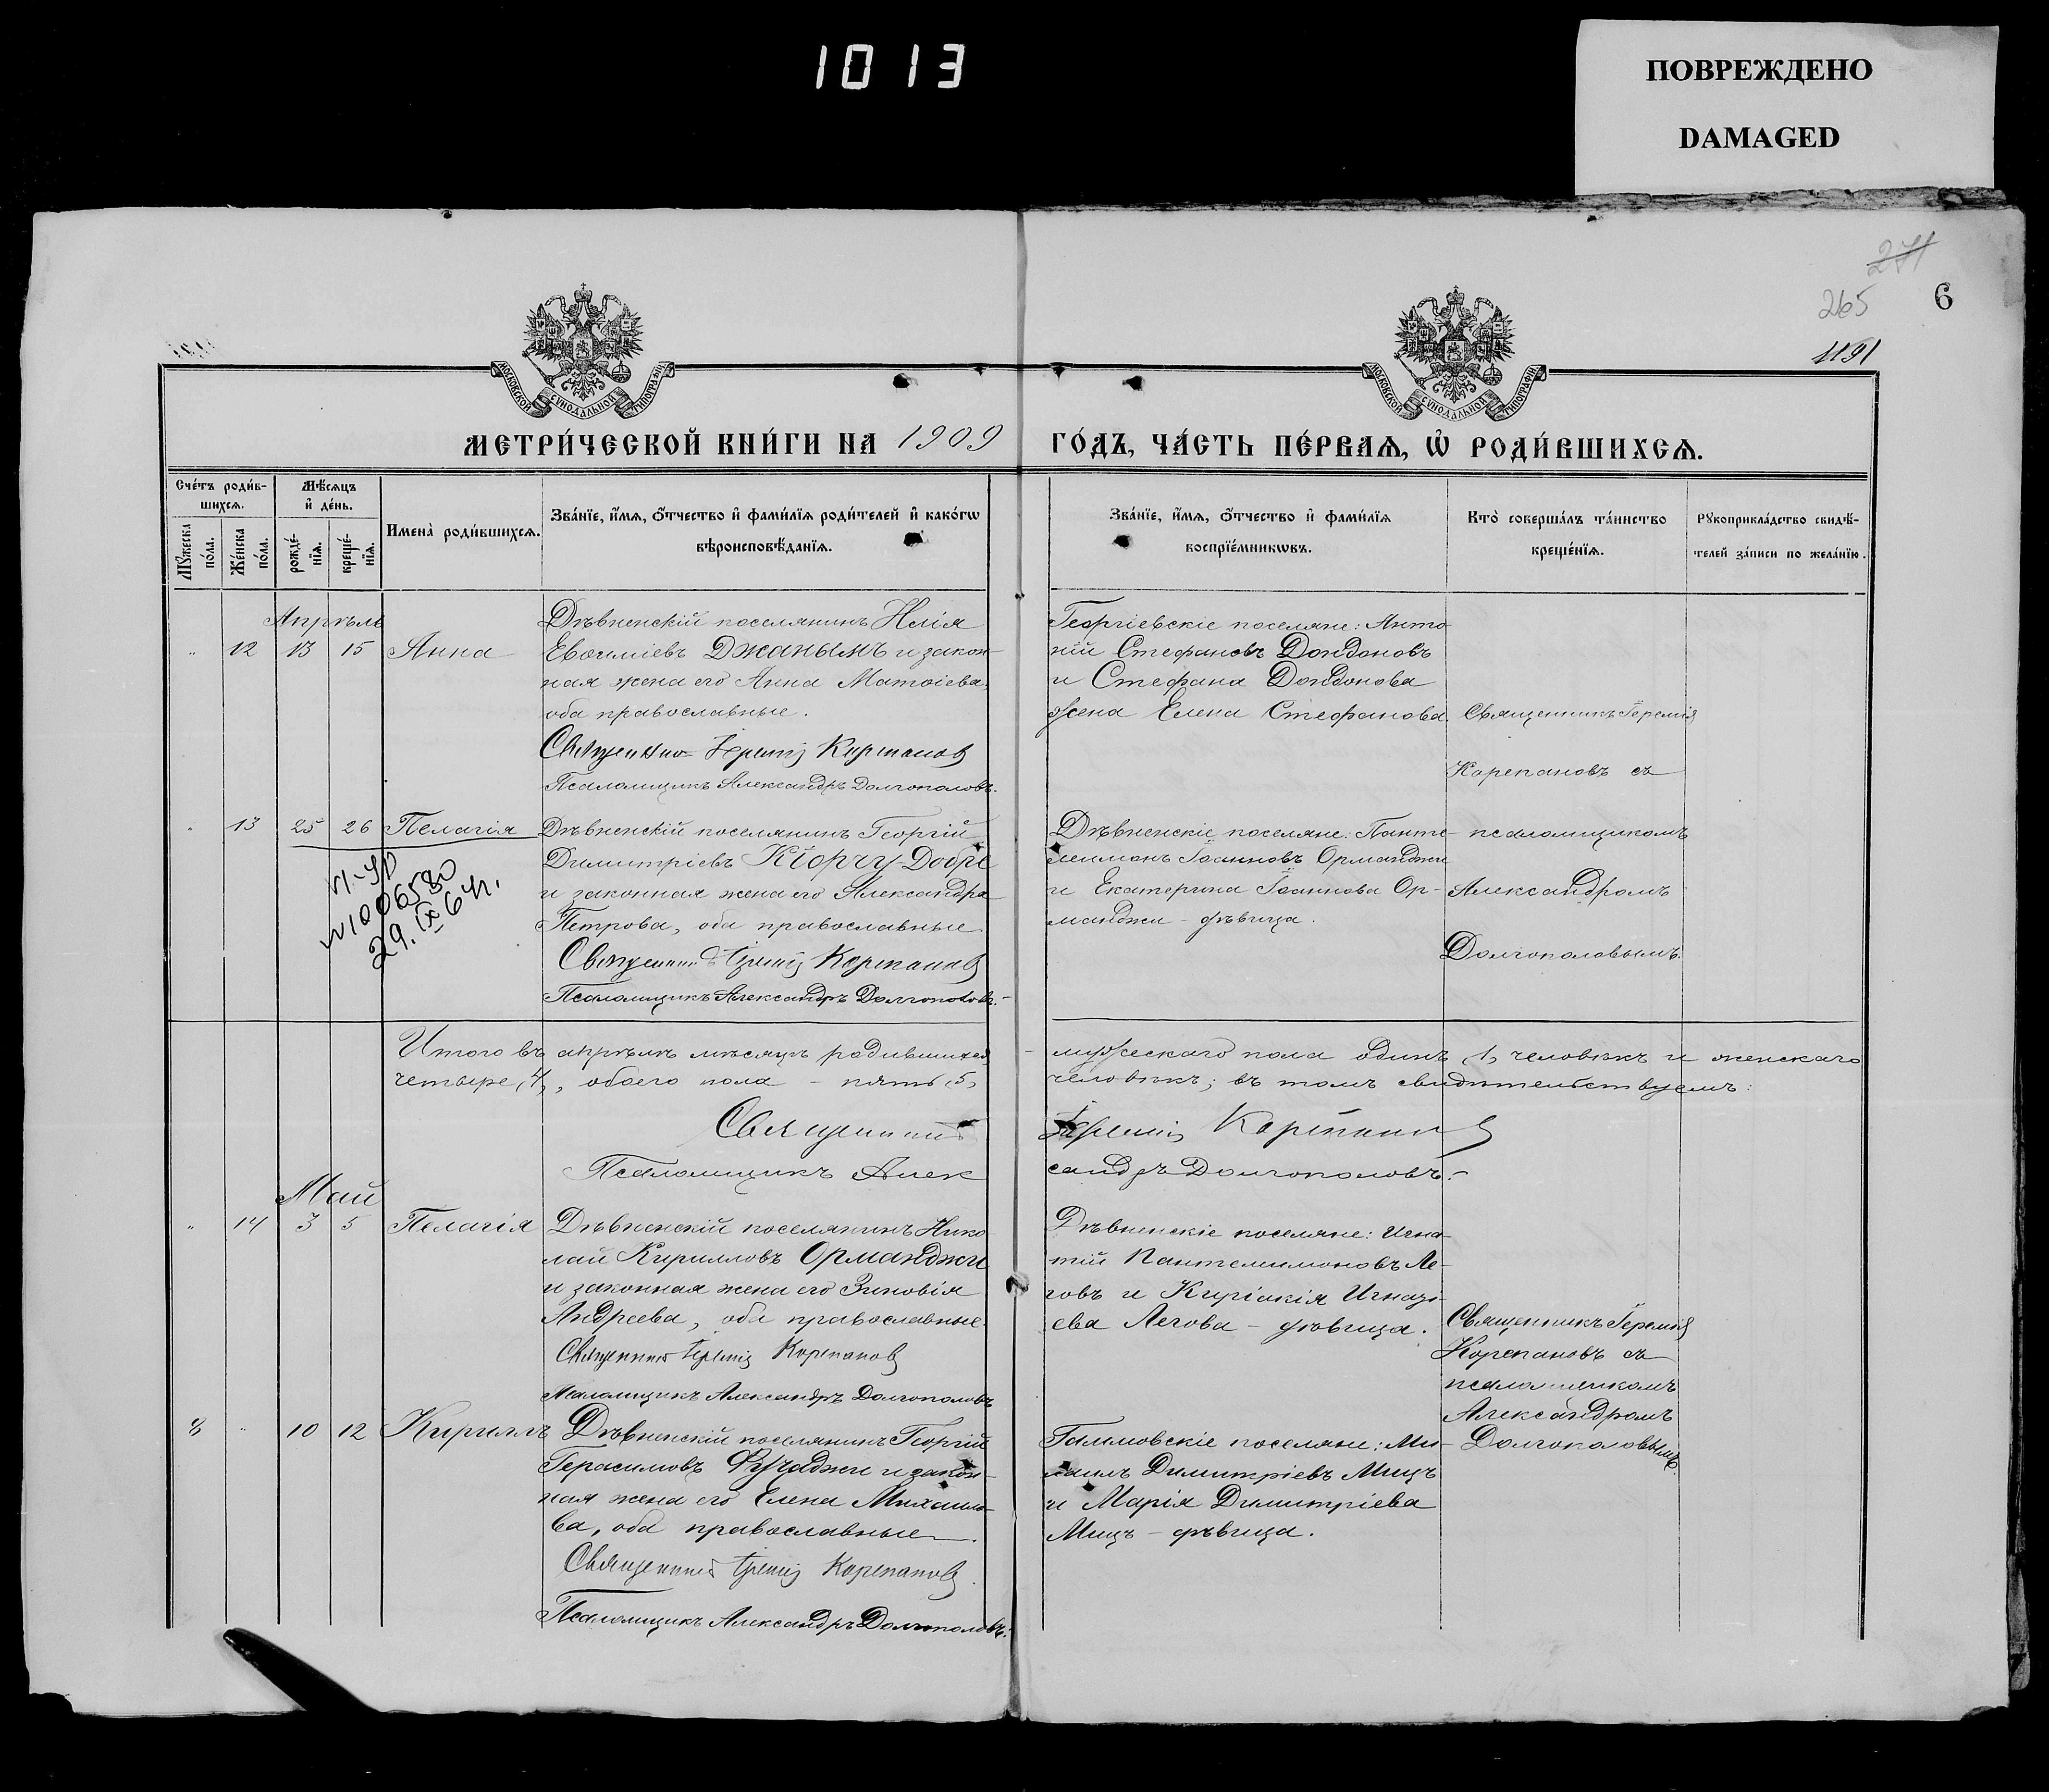 1013
ПОВРЕЖДЕНО
DAMAGED
271
265
6
1191
МОСКОВСКОЙ СѴНОДАЛЬНОЙ ТИПОГРАФІИ
МОСКОВСКОЙ СѴНОДАЛЬНОЙ ТИПОГРАФІИ
МЕТРИ́ЧЕСКОЙ КНИ́ГИ НА 1909 ГО́ДЪ, ЧА́СТЬ ПЕ́РВАѦ, Ѡ҆ РОДИ́ВШИХСѦ.
Сче́тъ роди́в-
шихсѧ.
Мѣ́сѧцъ
и҆ де́нь.
Мꙋ́жеска
по́ла.
Же́нска
по́ла.
рожде́-
нїѧ.
креще́-
нїѧ.
Имена̀ роди́вшихсѧ.
Зва́нїе, и҆́мѧ, ѻ҆́тчество и҆ фами́лїѧ роди́телей и҆ како́гѡ
вѣроисповѣ́данїѧ.
Зва́нїе, и҆́мѧ, ѻ҆́тчество и҆ фами́лїѧ
воспрїе́мникѡвъ.
Кто̀ соверша́лъ та́инство
креще́нїѧ.
Рꙋкоприкла́дство свидѣ́-
телей за́писи по жела́нїю.
Апрѣль
" 12 13 15 Анна
Дѣвненскій поселянинъ Илія
Евѳиміевъ Джанымъ и закон-
ная жена его Анна Матѳіева,
оба православные.
Священникъ Іеремія Корепановъ
Псаломщикъ Александръ Долгополовъ.
Георгіевскіе поселяне: Анто-
ній Стефановъ Дондоновъ
и Стефана Дондонова
жена Елена Стефанова.
Священникъ Іеремія
Корепановъ съ
псаломщикомъ
Александромъ
Долгополовымъ.
" 13 25 26 Пелагія
29.IX 64г.
Дѣвненскій поселянинъ Георгій
Димитріевъ Кіорчу-Добре
и законная жена его Александра
Петрова, оба православные.
Священникъ Іеремія Корепановъ
Псаломщикъ Александръ Долгополовъ.
Дѣвненскіе поселяне: Панте-
леимонъ Іоанновъ Орманджи
и Екатерина Іоаннова Ор-
манджи - дѣвица.
Итого въ апрѣлѣ мѣсяцѣ родившихся - мужескаго пола одинъ (1) человѣкъ и женскаго
четыре (4), обоего пола - пять (5) человѣкъ; въ томъ свидѣтельствуемъ:
Священникъ Іеремія Корепановъ
Псаломщикъ Александръ Долгополовъ.
Май
" 14 3 5 Пелагія
Дѣвненскій поселянинъ Нико-
лай Кирилловъ Орманджи
и законная жена его Зиновія
Андреева, оба православные.
Священникъ Іеремія Корепановъ
Псаломщикъ Александръ Долгополовъ
Дѣвненскіе поселяне: Игна-
тій Пантелеимоновъ Ле-
говъ и Киріакія Игнать-
ева Легова - дѣвица.
Священникъ Іеремія
Корепановъ съ
псаломщикомъ
Александромъ
Долгополовымъ.
8 " 10 12 Кириллъ
Дѣвненскій поселянинъ Георгій
Герасимовъ Фучаджи и закон-
ная жена его Елена Михаило-
ва, оба православные.
Священникъ Іеремія Корепановъ
Псаломщикъ Александръ Долгополовъ.
Галиловскіе поселяне: Ми-
хаилъ Димитріевъ Мицъ
и Марія Димитріева
Мицъ - дѣвица.